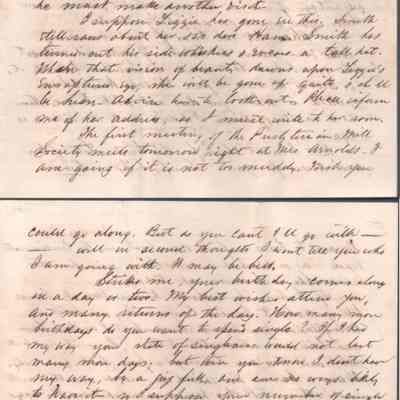 he must make another visit.
I suppose Lizzie has gone
still raves about her. Smith has
turned out his side whiskers & wears a tall hat.
When that vision of beauty dawns upon Lizzie's
enraptured eye, she will be gone
Advise her to look out. Please inform
me of her address, as I must write to her soon.
The first meeting of the
Society meets tomorrow night at Mrs Arnolds. I
am going if it is not too muddy. Wish you
could go along. But as you can't I'll go with —
— well on second thoughts I won't tell you who
I am going with. It may be best.
Strikes me, your birthday comes along
in a day or two. My best wishes attend you,
and many returns of the day. How many more
birthdays do you want to spend single? If I had
my way your state of singleness would not last
many more days; but then you know I don't have
my way, by a jug full, and am no ways likely
to have it, so I suppose your number of single